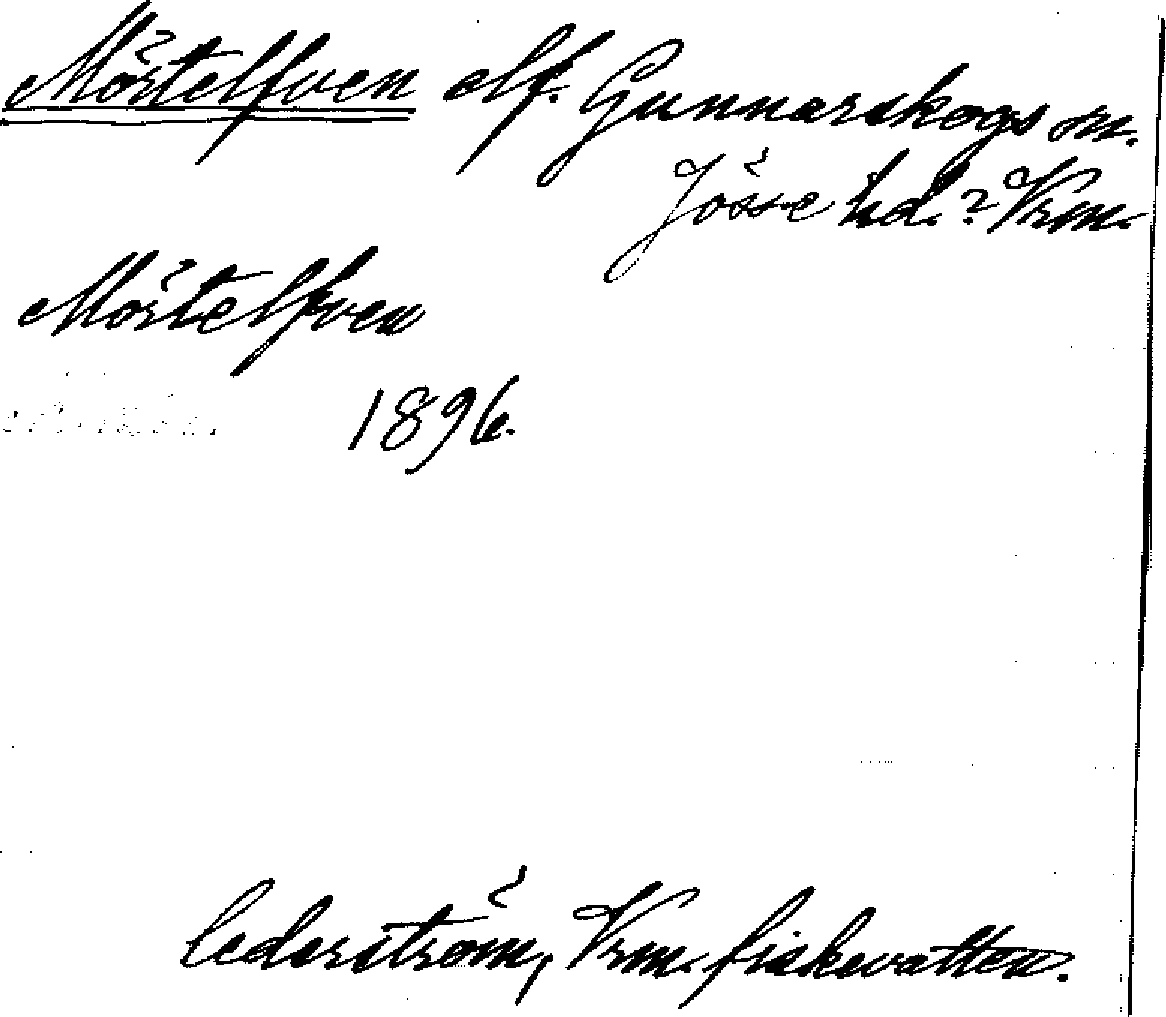 Mörtelfven elf. Gunnarskogs sn.
Jösse hd.? Vrm.
Mörtelfven
1896.
Cederström, Vrm. fiskevatten.